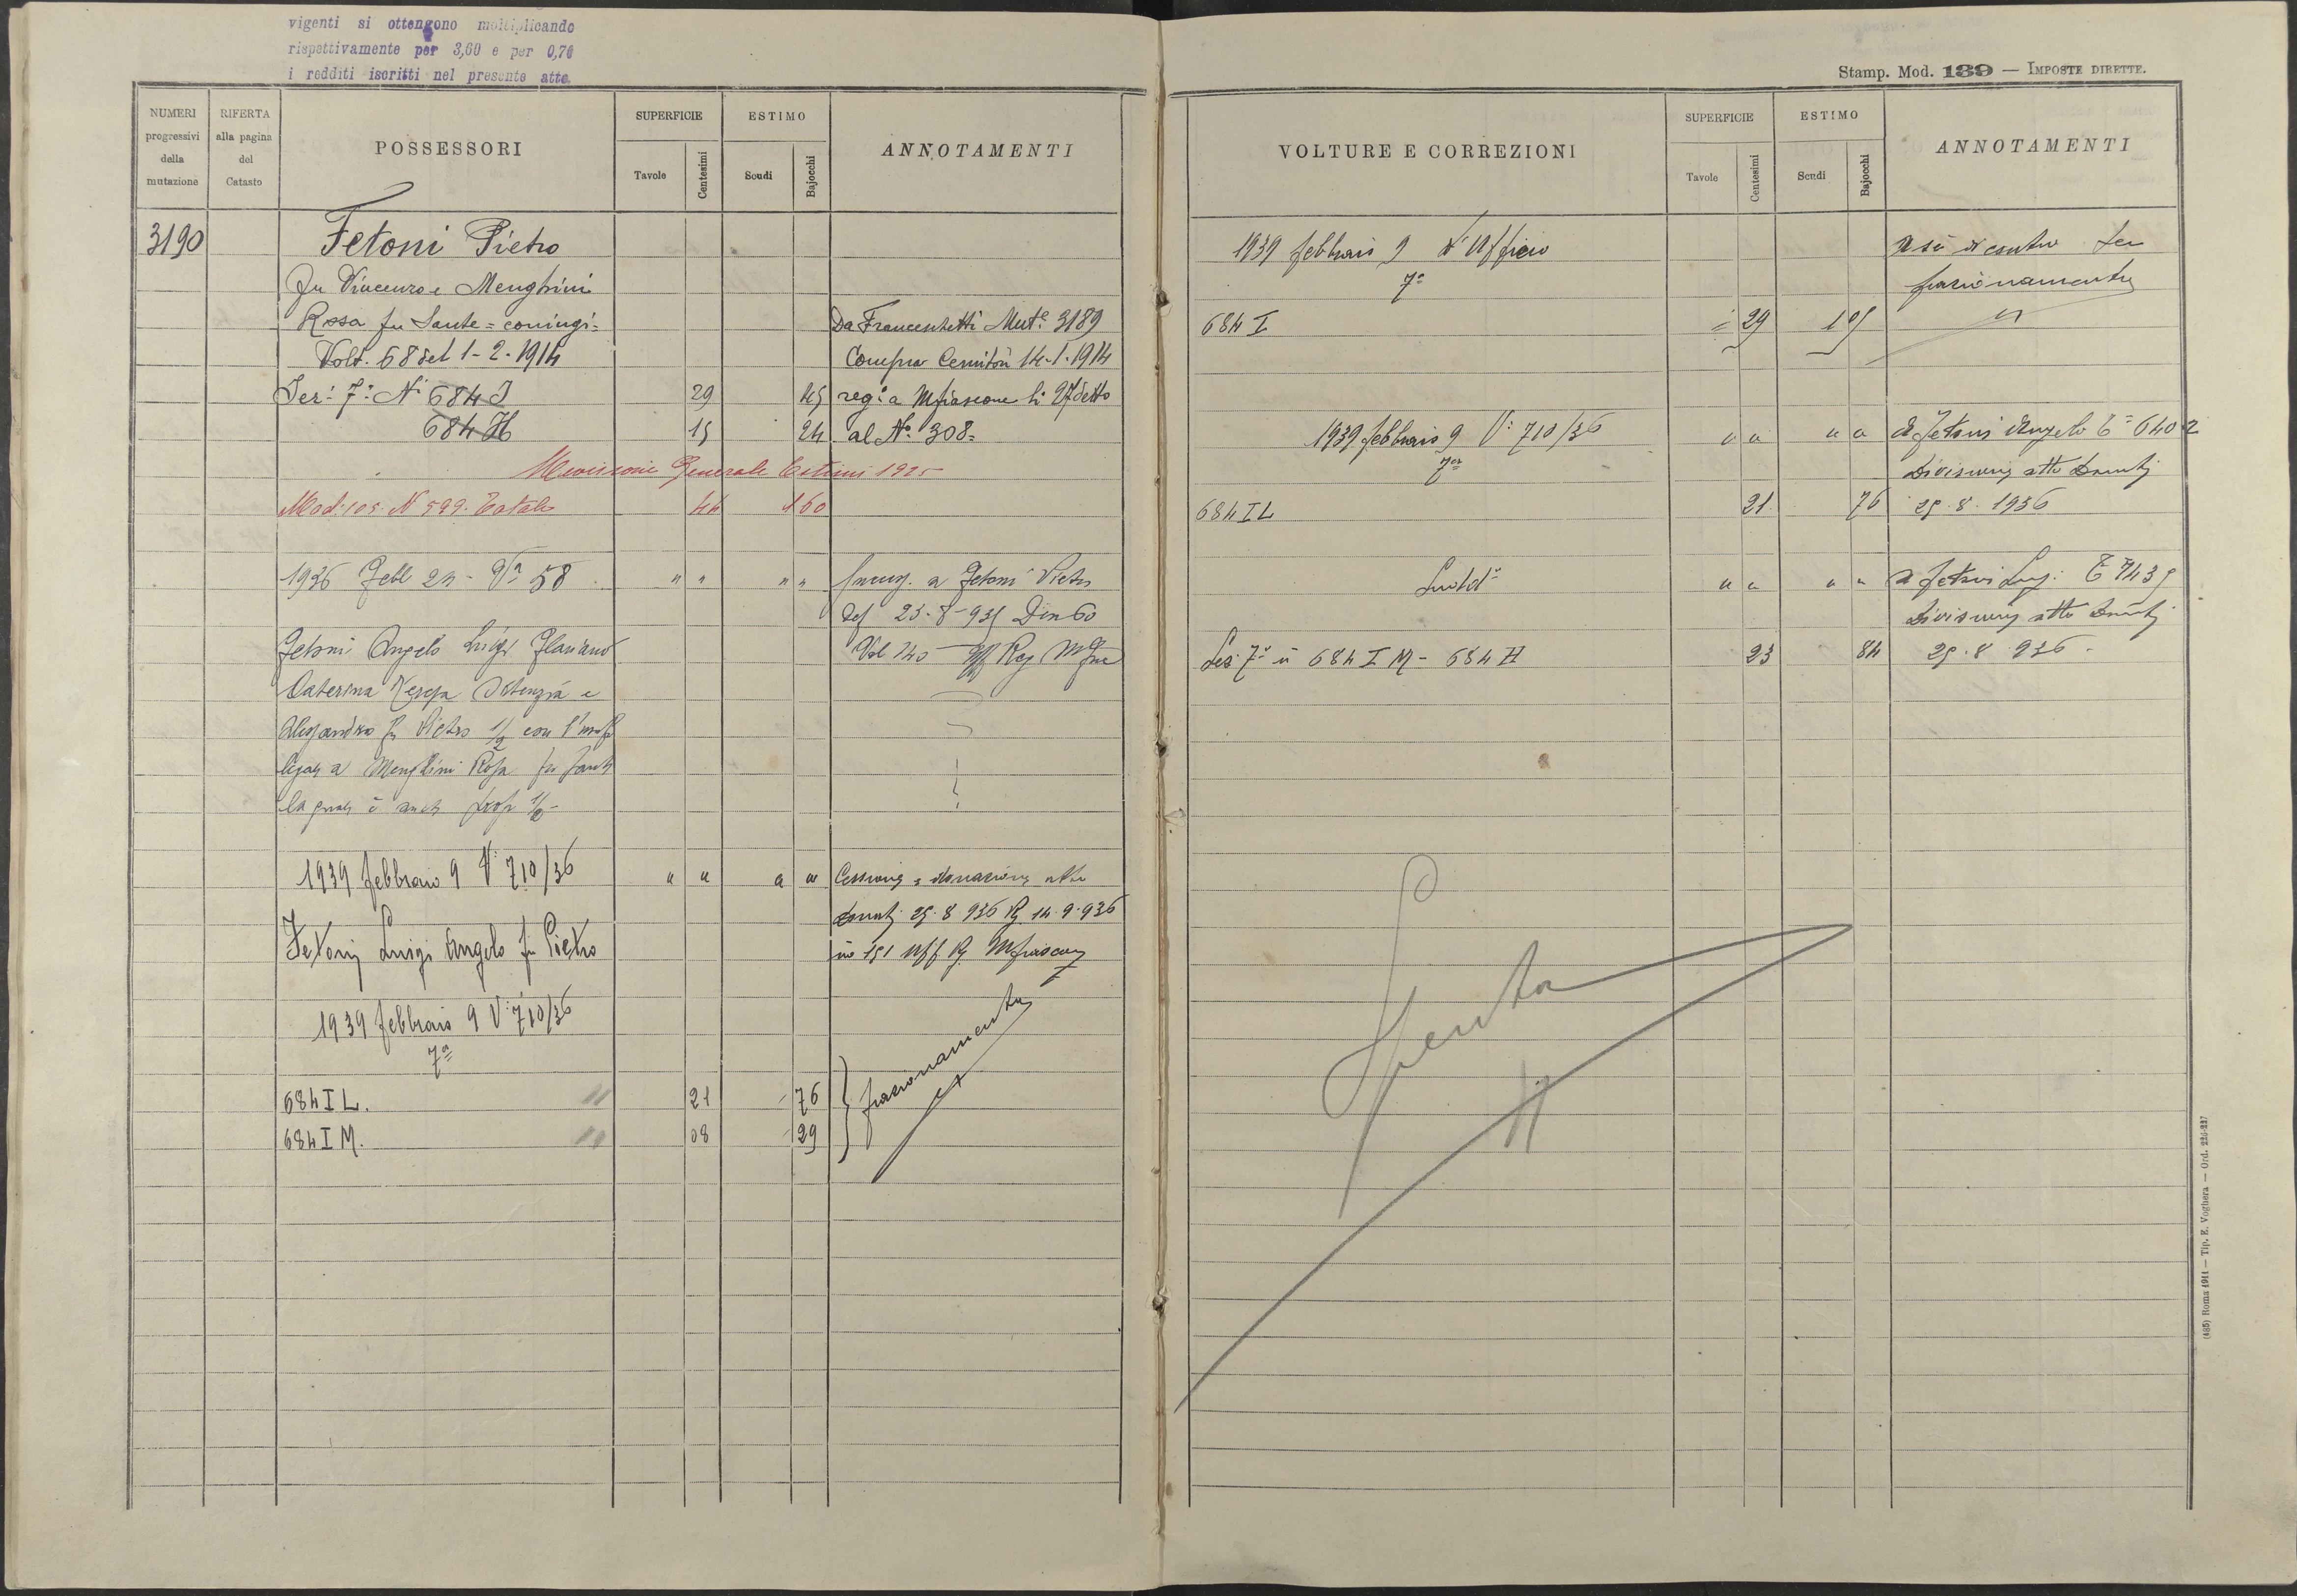 vigenti si ottengono moltiplicando
rispettivamente per 3,60 e per 0,70
i redditi iscritti nel presente atto.
NUMERI progressivi della mutazione
RIFERTA alla pagina del Catasto
POSSESSORI
SUPERFICIE
Tavole
Centesimi
ESTIMO
Scudi
Bajocchi
ANNOTAMENTI
3190 Fetoni Pietro
fu Vincenzo e Menghini
Rosa fu Sante = coniugi = Da Franceschetti Mut.e 3189
Volt. 68 del 1-2-1914 Compra Cernitori 14-1-1914
Sez: 7a N. 684 I 29 45 reg.a Mfiascone li 27 detto
684 H 15 24 al N.o 308 =
Revisione Generale Estimi 1925
Mod. 105 N 599. Totale 44 160
1936 Febb 24 - Va 58 " " " " a Fetoni Pietro
25-8-935 Den 60
Fetoni Angelo Luigi Flaviano Vol 140 Uff Reg
Caterina Teresa Ortenzia e
Alessandro fu Pietro 1/2 con
a Menghini Rosa fu Sante
la quale è anche prop 1/2 -
1939 febbraio 9 V: 710/36 " " " " Cessione e donazione atto
25.8.936 Rg. 14.9.936
Fetoni Luigi Angelo fu Pietro no 151 Uff Rg. Mfiascone
1939 febbraio 9 V: 710/36
7a
684 I L. 21 76
684 I M. 08 29
frazionamento
Stamp. Mod. 139 — IMPOSTE DIRETTE.
VOLTURE E CORREZIONI
SUPERFICIE
Tavole
Centesimi
ESTIMO
Scudi
Bajocchi
ANNOTAMENTI
1939 febbraio 9 d'Ufficio A sè di contro per
7a frazionamento
684 I 29 105 "
1939 febbraio 9 V: 710/36 " " " " A Fetoni Angelo 6402
7a Divisione atto
684 I L 21 76 25.8.1936
" " " " a Fetoni Luigi 7435
Divisione atto
Sez 7a n 684 I M - 684 H 23 84 25.8.936.
Spenta
(485) Roma 1914 — Tip. E. Voghera — Ord.